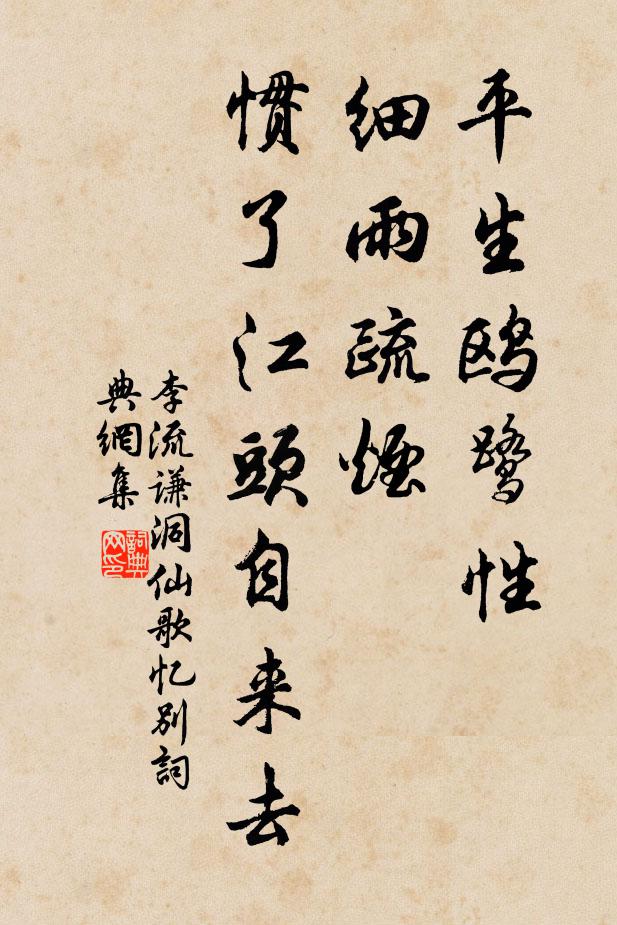 平生鸥鹭性
细雨疏煙
惯了江頭自来去
李流谦洞仙歌忆别詞
典網集
詞典
网印